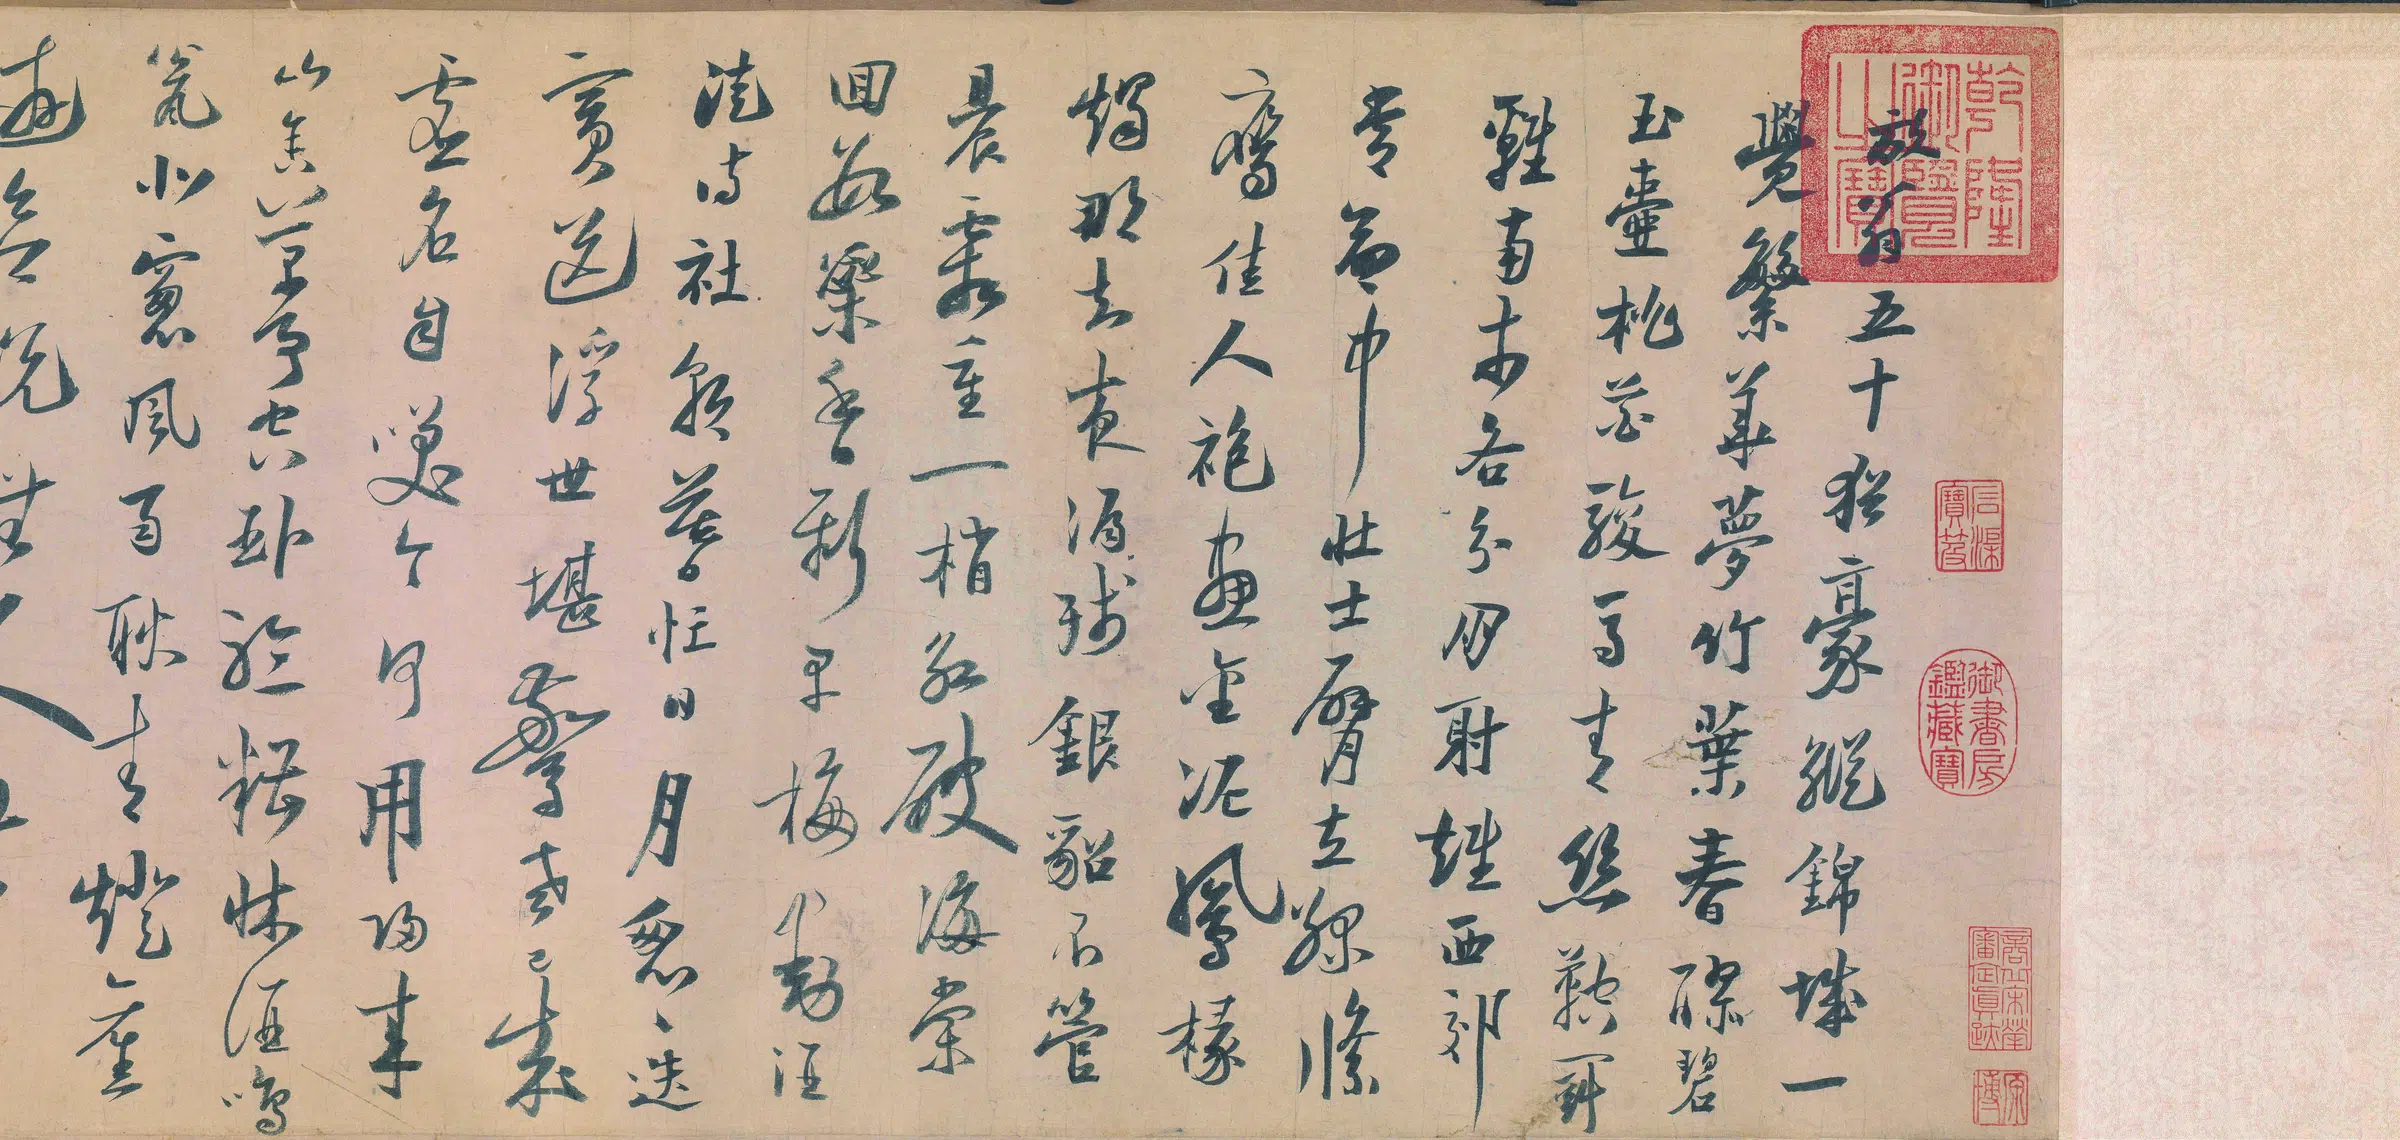 乾隆御覽之寶
石渠寶笈
御書房鑑藏寶
商丘宋犖審定真跡
放翁五十猶豪縱錦城一
覺繁華夢竹葉春醪碧
玉壺桃花駿馬青絲鞚鬥
雞南市各分朋射雉西郊
常命中壯士臂立綠絛
鷹佳人袍畫金泥鳳椽
燭那知夜漏殘銀貂不管
晨霜重一梢紅破海棠
回數蕊香新早梅動酒
徒詩社朝暮忙日月匆々迭
賓送浮世堪驚老已成
虛名自笑今何用歸來
山舍萬事空臥聽糟床酒鳴
甕北窗風雨耿青燈舊
遊欲說無人